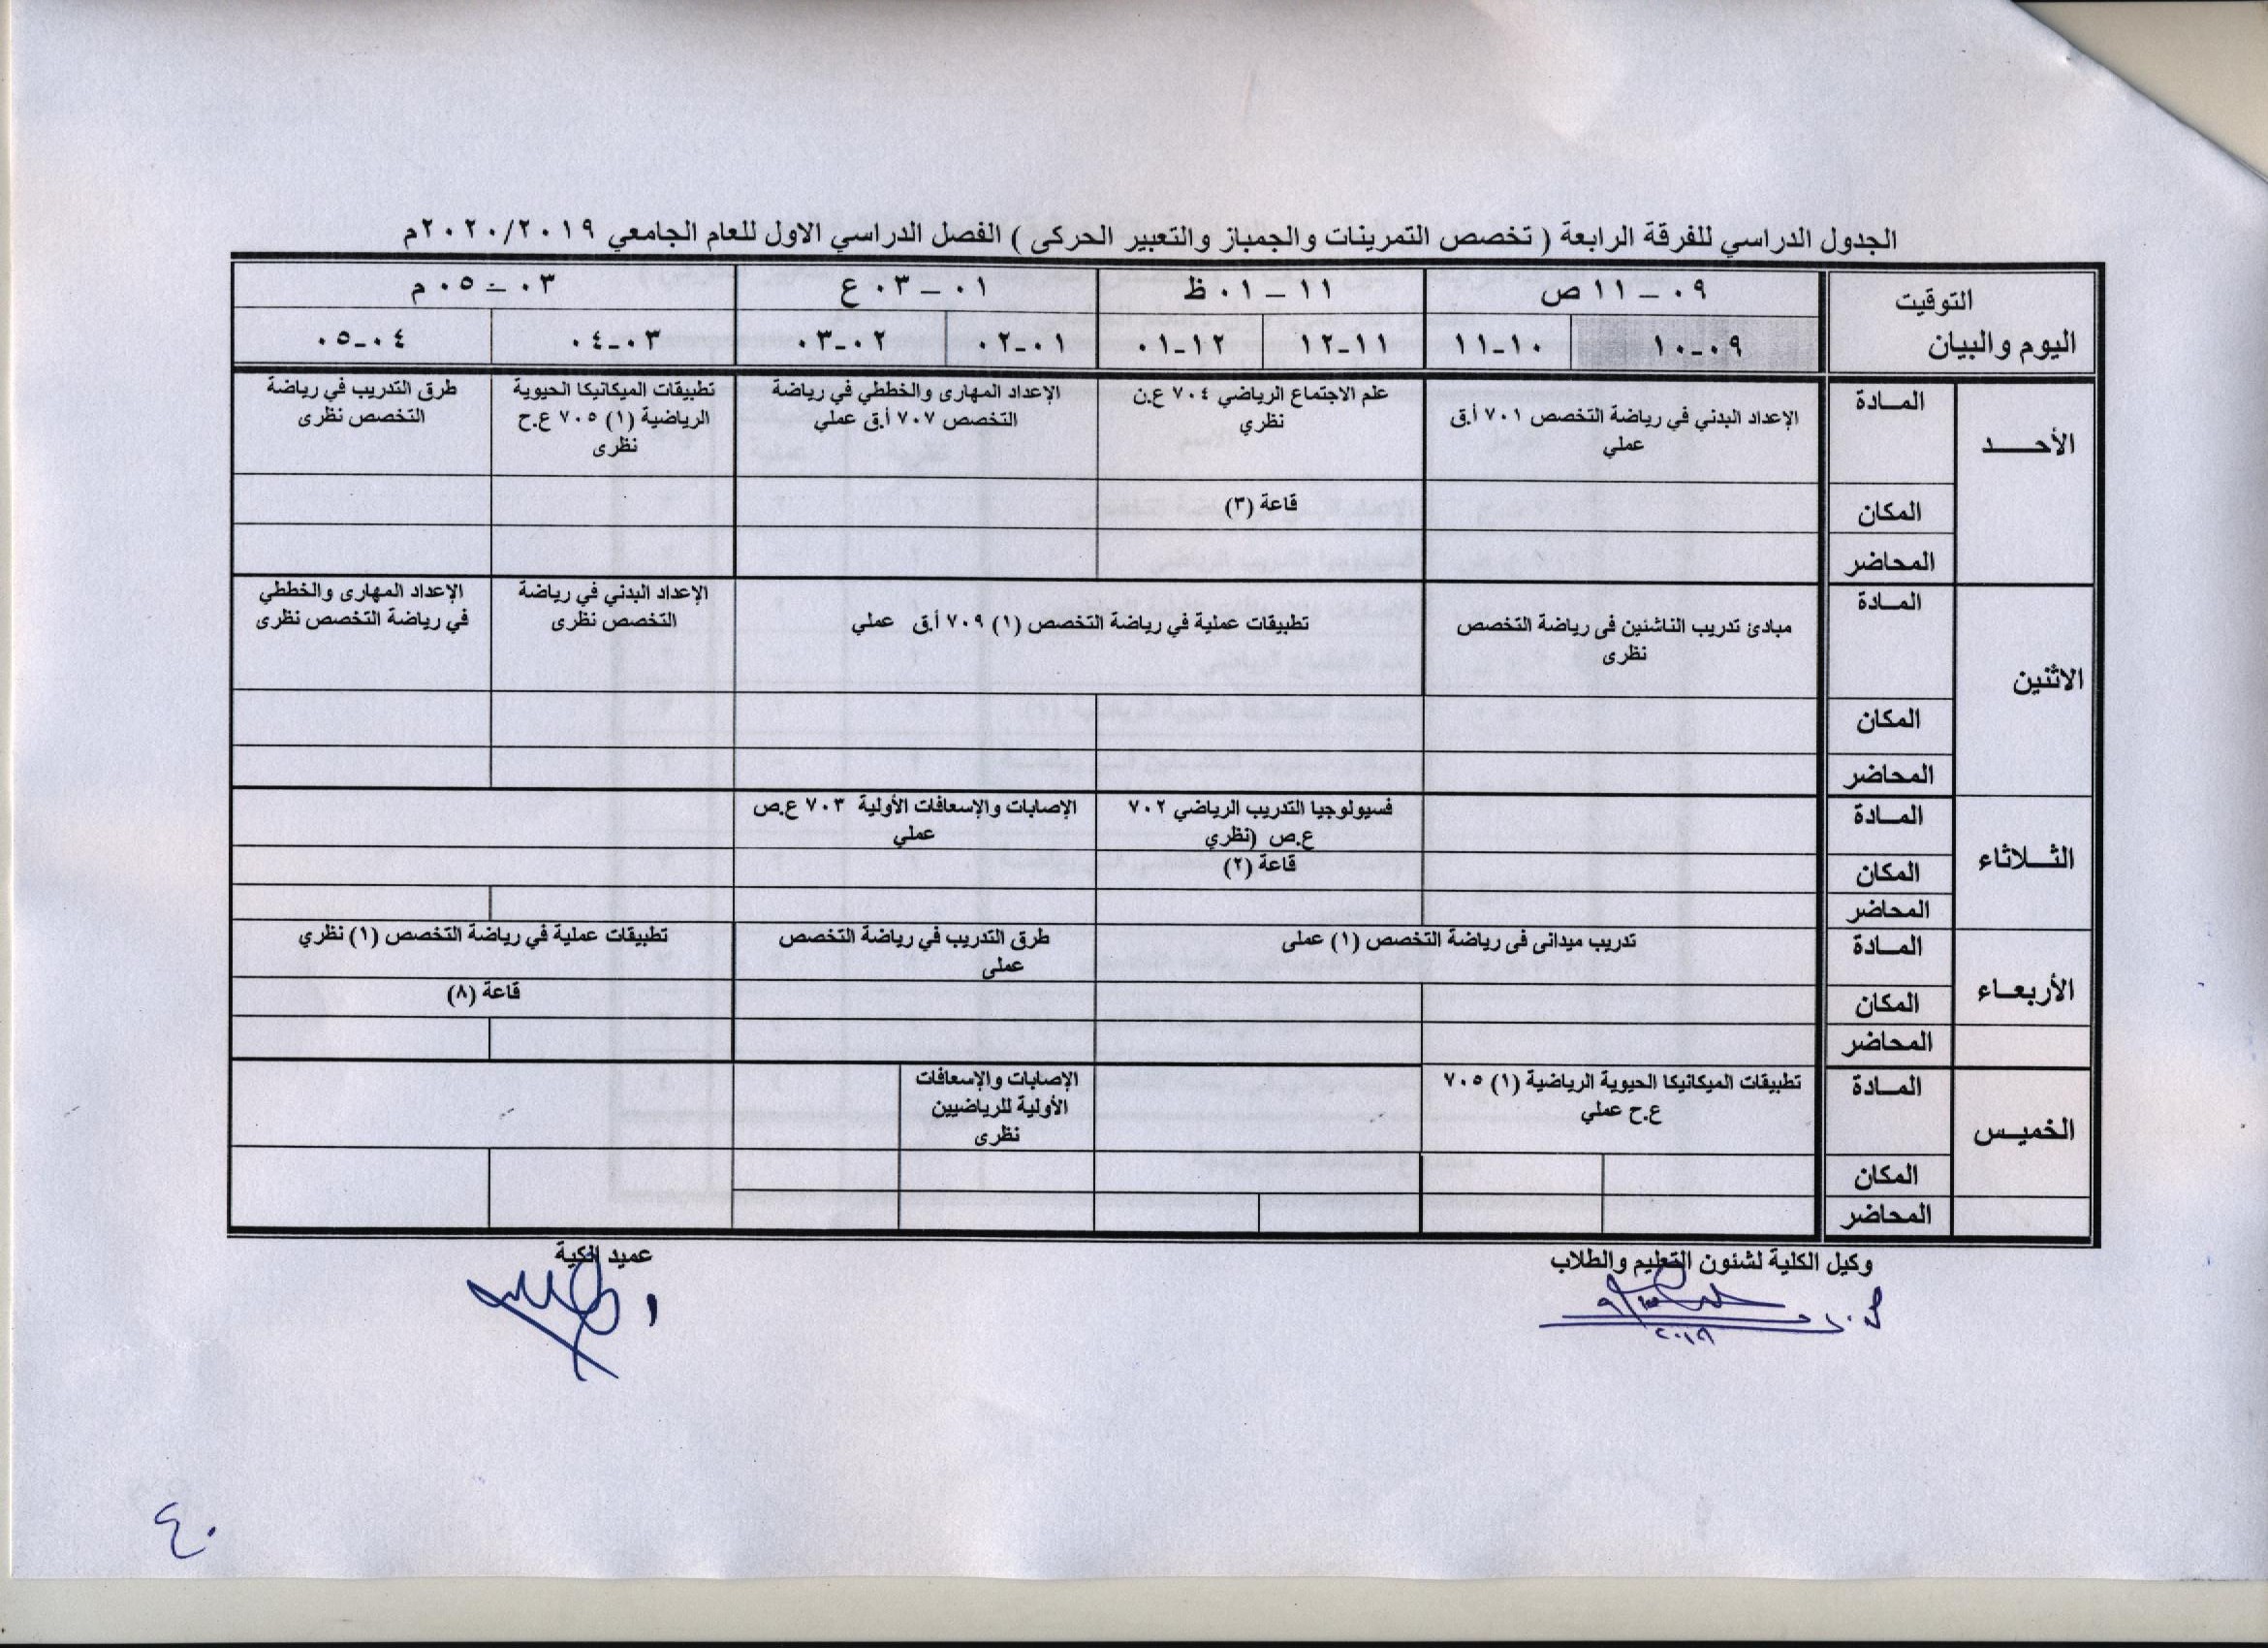 الجدول الدراسي للفرقة الرابعة ( تخصص التمرينات والجمباز والتعبير الحركى ) الفصل الدراسي الاول للعام الجامعي ٢٠٢٠/٢٠١٩م
التوقيت
اليوم والبيان
٠٩ – ١١ ص
١١ – ٠١ ظ
٠١ – ٠٣ ع
٠٣ – ٠٥ م
٠٩-١٠
١٠-١١
١١-١٢
١٢-٠١
٠١-٠٢
٠٢-٠٣
٠٣-٠٤
٠٤-٠٥
الأحـــد
المــادة
الإعداد البدني في رياضة التخصص ٧٠١ أ.ق
عملي
علم الاجتماع الرياضي ٧٠٤ ع.ن
نظري
الإعداد المهارى والخططي في رياضة
التخصص ٧٠٧ أ.ق عملي
تطبيقات الميكانيكا الحيوية
الرياضية (١) ٧٠٥ ع.ح
نظرى
طرق التدريب في رياضة
التخصص نظرى
المكان
قاعة (٣)
المحاضر
الاثنين
المــادة
مبادئ تدريب الناشئين فى رياضة التخصص
نظرى
تطبيقات عملية في رياضة التخصص (١) ٧٠٩ أ.ق عملي
الإعداد البدني في رياضة
التخصص نظرى
الإعداد المهارى والخططي
في رياضة التخصص نظرى
المكان
المحاضر
الثــلاثاء
المــادة
فسيولوجيا التدريب الرياضي ٧٠٢
ع.ص (نظري
الإصابات والإسعافات الأولية ٧٠٣ ع.ص
عملي
المكان
قاعة (٢)
المحاضر
الأربعـاء
المــادة
تدريب ميدانى فى رياضة التخصص (١) عملى
طرق التدريب في رياضة التخصص
عملى
تطبيقات عملية في رياضة التخصص (١) نظري
المكان
قاعة (٨)
المحاضر
الخميـس
المــادة
تطبيقات الميكانيكا الحيوية الرياضية (١) ٧٠٥
ع.ح عملي
الإصابات والإسعافات
الأولية للرياضيين
نظرى
المكان
المحاضر
وكيل الكلية لشئون التعليم والطلاب
عميد الكية
٢٠١٩
٤٠